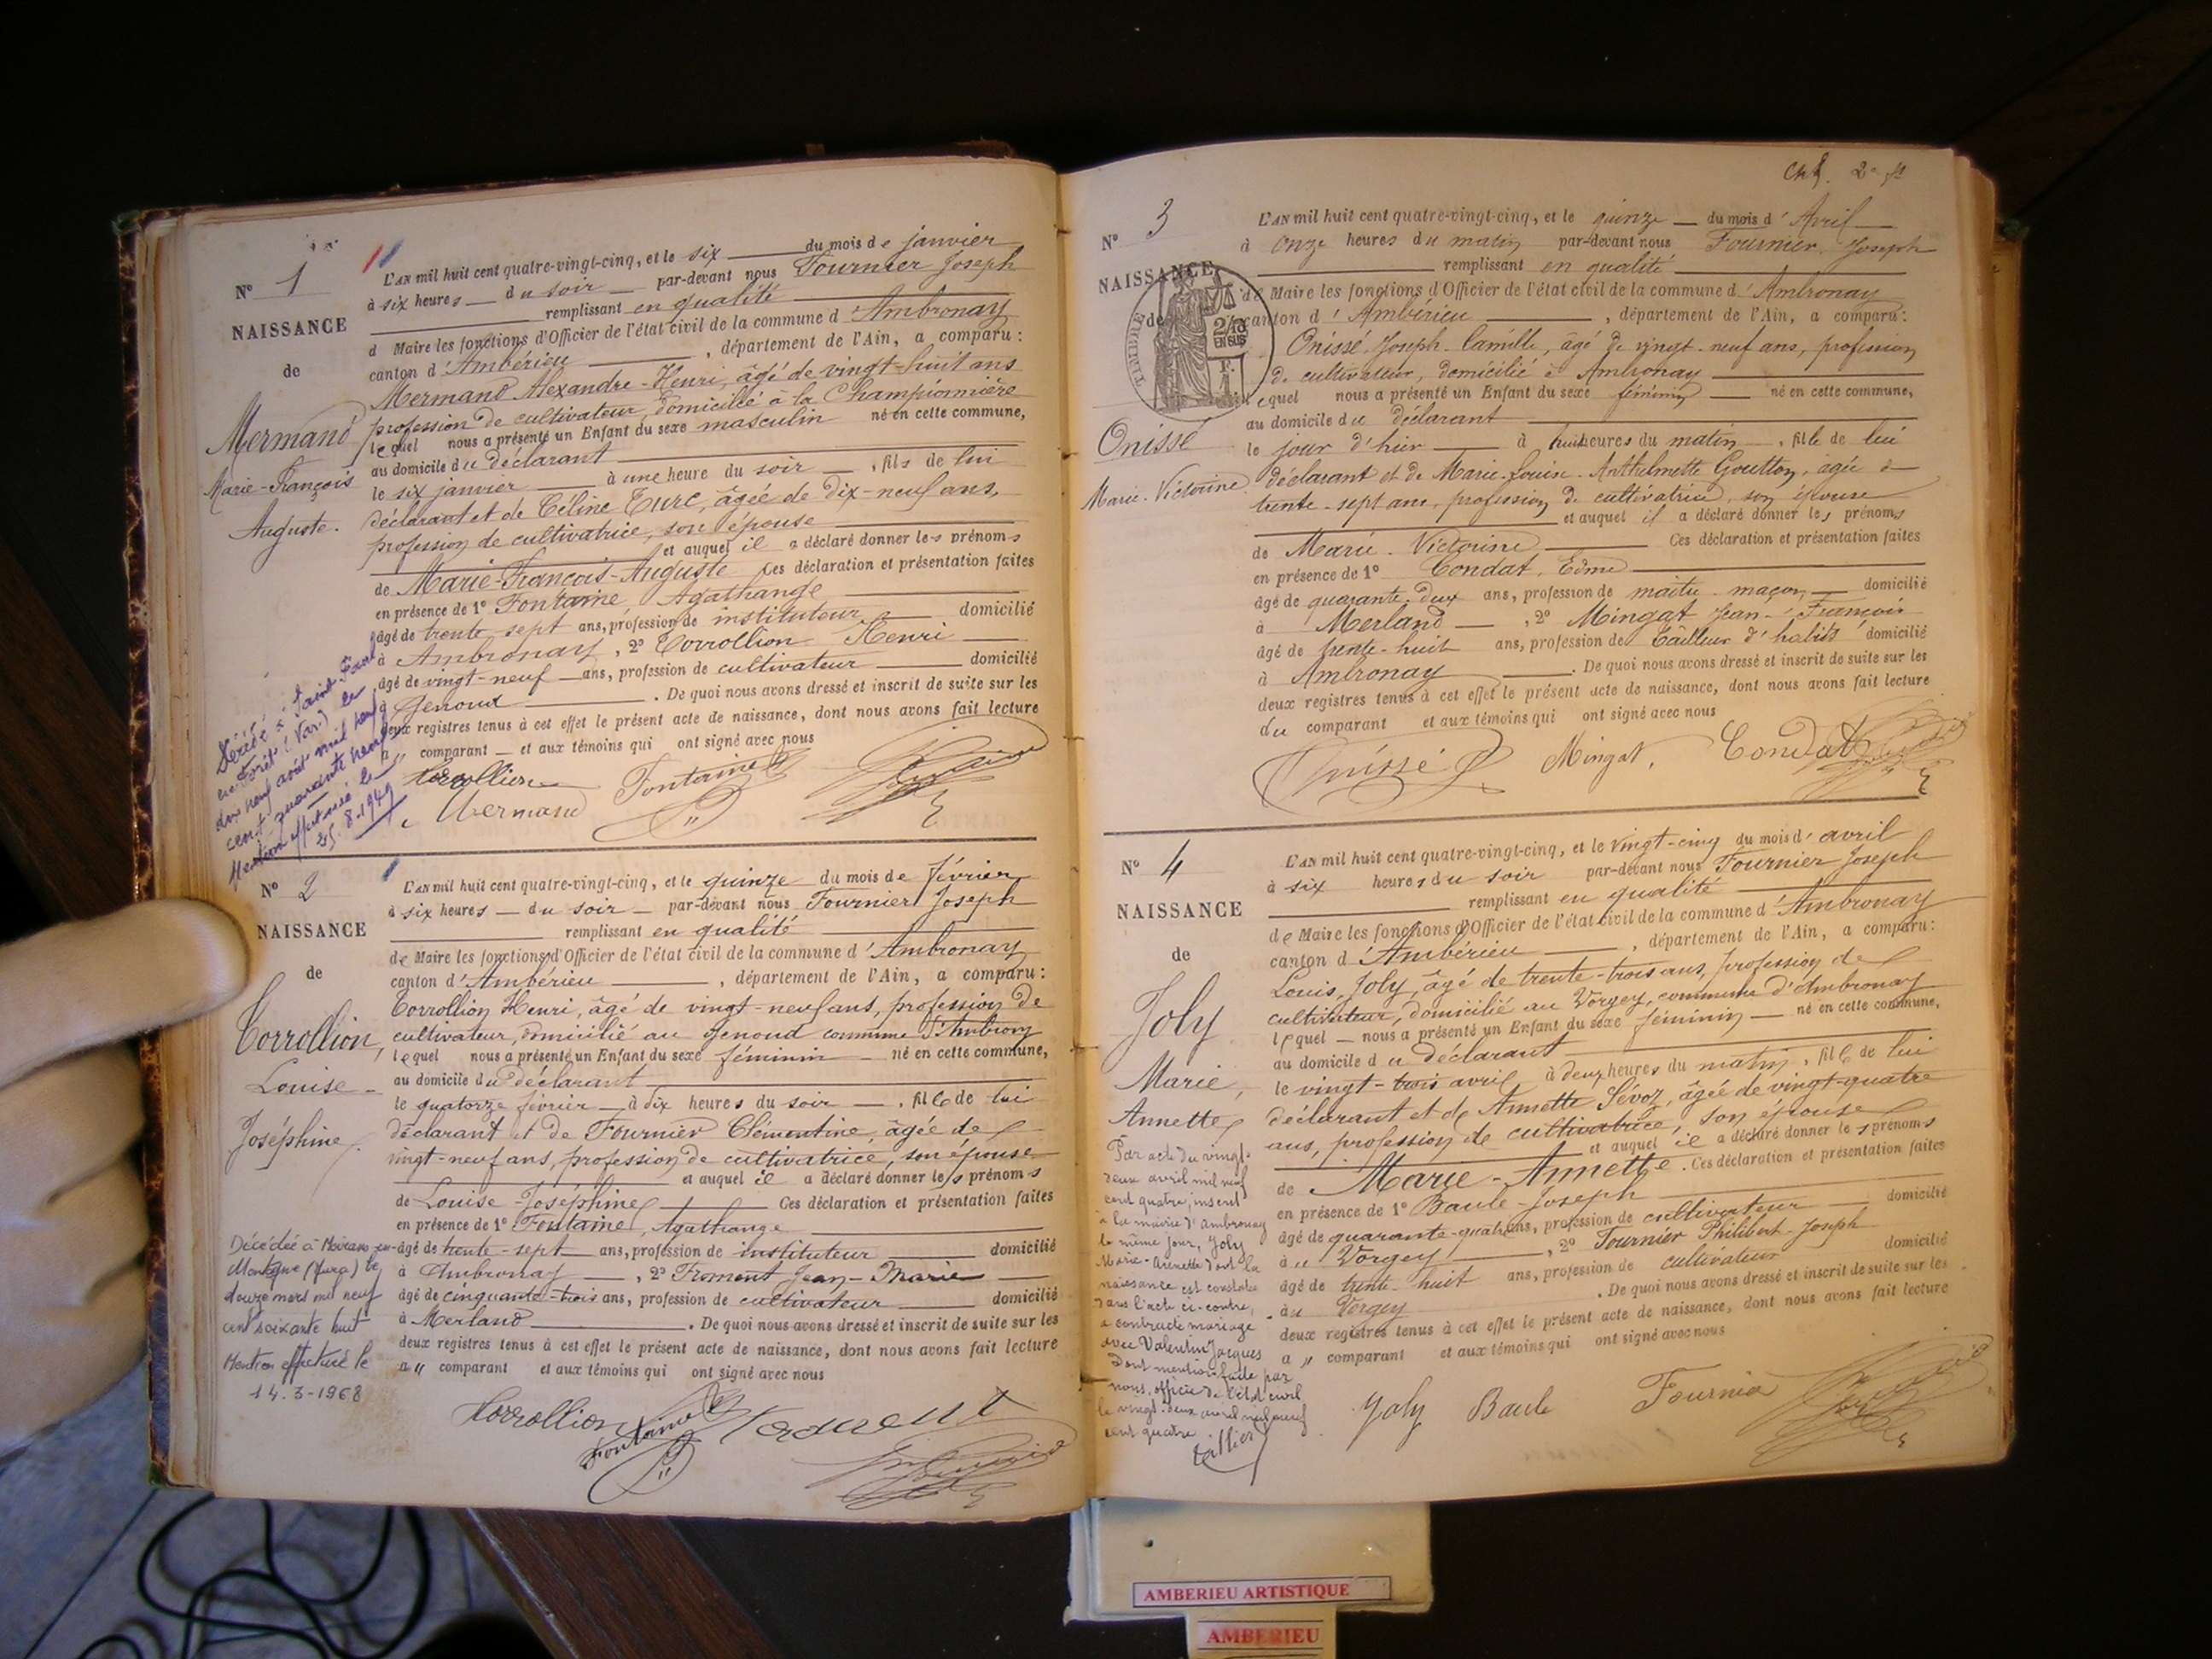 N° 1
NAISSANCE
de
Mermand
Marie-François
Auguste.
L'AN mil huit cent quatre-vingt-cinq, et le six du mois de janvier
à six heures du soir par-devant nous Fournier Joseph
remplissant en qualité
d Maire les fonctions d'Officier de l'état civil de la commune d'Ambronay
canton d'Ambérieu, département de l'Ain, a comparu:
Mermand Alexandre-Henri, âgé de vingt-huit ans
profession de cultivateur, domicilié à la Championnière
lequel nous a présenté un Enfant du sexe masculin né en cette commune,
au domicile du déclarant
le six janvier à une heure du soir, fils de lui
déclarant et de Céline Turc, âgée de dix-neuf ans,
profession de cultivatrice, son épouse
et auquel il a déclaré donner les prénoms
de Marie-François-Auguste Ces déclaration et présentation faites
en présence de 1° Fontaine Agathange
âgé de trente sept ans, profession de instituteur domicilié
à Ambronay, 2° Corrollion Henri
âgé de vingt-neuf ans, profession de cultivateur domicilié
à Genoud. De quoi nous avons dressé et inscrit de suite sur les
deux registres tenus à cet effet le présent acte de naissance, dont nous avons fait lecture
comparant et aux témoins qui ont signé avec nous
Corrollion Fontaine
Mermand
Décédé à Saint Paul
en-Forêt (Var) le
dix neuf août mil neuf
cent quarante neuf
Mention effectuée le
25.8.1949
N° 2
NAISSANCE
de
Corrollion,
Louise
Joséphine
L'AN mil huit cent quatre-vingt-cinq, et le quinze du mois de février
à six heures du soir par-devant nous Fournier Joseph
remplissant en qualité
de Maire les fonctions d'Officier de l'état civil de la commune d'Ambronay
canton d'Ambérieu, département de l'Ain, a comparu:
Corrollion Henri, âgé de vingt-neuf ans, profession de
cultivateur, domicilié au Genoud commune d'Ambrony
lequel nous a présenté un Enfant du sexe féminin né en cette commune,
au domicile du déclarant
le quatorze février à dix heures du soir, fille de lui
déclarant et de Fournier Clémentine, âgée de
vingt-neuf ans, profession de cultivatrice, son épouse
et auquel il a déclaré donner les prénoms
de Louise-Joséphine Ces déclaration et présentation faites
en présence de 1° Fontaine, Agathange
âgé de trente-sept ans, profession de instituteur domicilié
à Ambronay, 2° Froment Jean-Marie
âgé de cinquante-trois ans, profession de cultivateur domicilié
à Merland. De quoi nous avons dressé et inscrit de suite sur les
deux registres tenus à cet effet le présent acte de naissance, dont nous avons fait lecture
a " comparant et aux témoins qui ont signé avec nous
Corrollion Fontaine Froment
Décédée à Moirans-en-
Montagne (Jura) le
douze mars mil neuf
cent soixante huit
Mention effectuée le
14.3-1968
N° 3
NAISSANCE
de
TIMBRE
2/10
EN SUS
Onissé
Marie-Victorine
L'AN mil huit cent quatre-vingt-cinq, et le quinze du mois d'Avril
à onze heures du matin par-devant nous Fournier Joseph
remplissant en qualité
de Maire les fonctions d'Officier de l'état civil de la commune d'Ambronay
canton d'Ambérieu, département de l'Ain, a comparu:
Onissé Joseph-Camille, âgé de vingt-neuf ans, profession
de cultivateur, domicilié à Ambronay
lequel nous a présenté un Enfant du sexe féminin né en cette commune,
au domicile du déclarant
le jour d'hier à huit heures du matin, fille de lui
déclarant et de Marie-Louise-Anthelmette Goutton, âgée de
trente-sept ans, profession de cultivatrice, son épouse
et auquel il a déclaré donner les prénoms
de Marie-Victorine Ces déclaration et présentation faites
en présence de 1° Condat, Edme
âgé de quarante-deux ans, profession de maître-maçon domicilié
à Merland, 2° Mingat Jean-François
âgé de trente-huit ans, profession de tailleur d'habits domicilié
à Ambronay. De quoi nous avons dressé et inscrit de suite sur les
deux registres tenus à cet effet le présent acte de naissance, dont nous avons fait lecture
du comparant et aux témoins qui ont signé avec nous
Onissé Mingat, Condat
N° 4
NAISSANCE
de
Joly
Marie,
Annette
L'AN mil huit cent quatre-vingt-cinq, et le vingt-cinq du mois d'avril
à six heures du soir par-devant nous Fournier Joseph
remplissant en qualité
de Maire les fonctions d'Officier de l'état civil de la commune d'Ambronay
canton d'Ambérieu, département de l'Ain, a comparu:
Louis, Joly, âgé de trente-trois ans, profession de
cultivateur, domicilié au Vorgey, commune d'Ambronay
lequel nous a présenté un Enfant du sexe féminin né en cette commune,
au domicile du déclarant
le vingt-trois avril à deux heures du matin, fille de lui
déclarant et de Annette Sévoz, âgée de vingt-quatre
ans, profession de cultivatrice, son épouse
et auquel il a déclaré donner les prénoms
de Marie-Annette. Ces déclaration et présentation faites
en présence de 1° Baule Joseph
âgé de quarante-quatre ans, profession de cultivateur domicilié
à " Vorgey, 2° Fournier Philibert-Joseph
âgé de trente-huit ans, profession de cultivateur domicilié
au Vorgey. De quoi nous avons dressé et inscrit de suite sur les
deux registres tenus à cet effet le présent acte de naissance, dont nous avons fait lecture
a " comparant et aux témoins qui ont signé avec nous
Joly Baule Fournier
Par acte du vingt-
deux avril mil neuf
cent quatre, inscrit
à la mairie d'Ambronay
le même jour, Joly
Marie-Annette dont la
naissance est constatée
dans l'acte ci-contre,
a contracté mariage
avec Valentin Jacques
Dont mention faite par
nous, officier de l'état civil
le vingt-deux avril mil neuf
cent quatre
AMBERIEU ARTISTIQUE
AMBERIEU